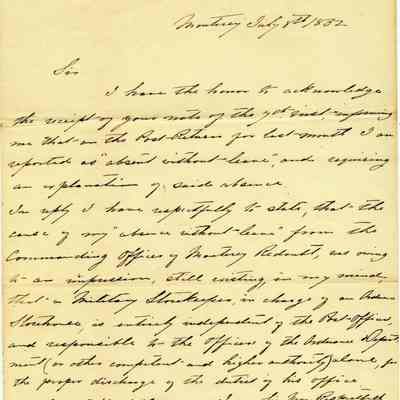 Monterey July 8th 1852
Sir
I have the honor to acknowledge
the receipt of your note of the 7th inst informing
me that on the Post Return for last month I am
reported as "absent without leave", and requiring
an explanation of said absence.
In reply I have respectfully to state, that the
cause of my "absence without leave" from the
Commanding Officer of Monterey Redoubt, was owing
to an impression, still existing in my mind,
that a Military Storekeeper, in charge of an Ordnance
Storehouse, is entirely independent of the Post Officer,
and responsible to the Officers of the Ordnance Depart
ment (or other competent and higher authority) alone, for
the proper discharge of the duties of his office